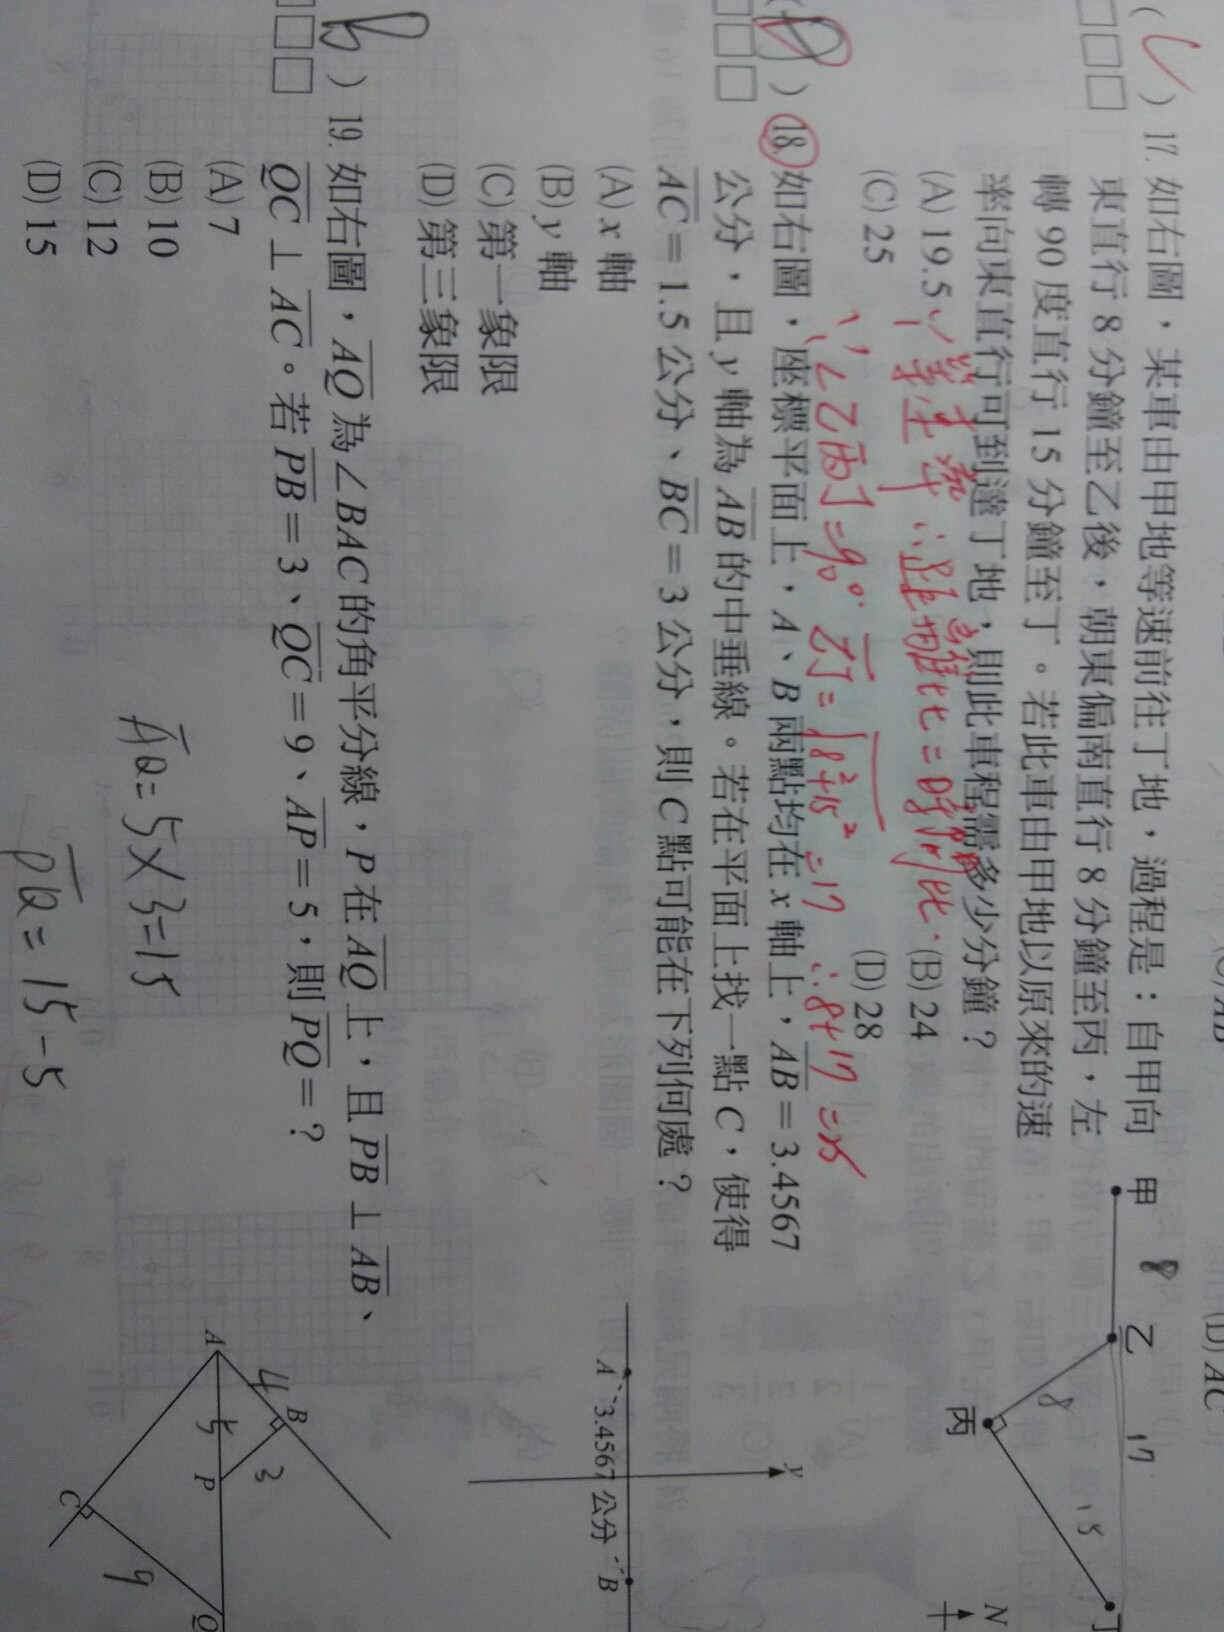 (D) AC
( ) 17. 如右圖，某車由甲地等速前往丁地，過程是：自甲向
東直行 8 分鐘至乙後，朝東偏南直行 8 分鐘至丙，左
轉 90 度直行 15 分鐘至丁。若此車由甲地以原來的速
率向東直行可到達丁地，則此車程需多少分鐘？
(A) 19.5
(B) 24
(C) 25
(D) 28
∴距離比=時間比
∠乙丙丁=90° 乙丁=√8²+15²=17 ∴8+17=25
甲
8
乙
17
8
丙
15
丁
N
( ) 18. 如右圖，座標平面上，A、B 兩點均在 x 軸上，AB＝3.4567
公分，且 y 軸為 AB 的中垂線。若在平面上找一點 C，使得
AC＝1.5 公分、BC＝3 公分，則 C 點可能在下列何處？
(A) x 軸
(B) y 軸
(C) 第一象限
(D) 第三象限
y
A
3.4567 公分
B
( b ) 19. 如右圖，AQ 為∠BAC 的角平分線，P 在 AQ 上，且 PB⊥AB、
QC⊥AC。若 PB＝3、QC＝9、AP＝5，則 PQ＝？
(A) 7
(B) 10
(C) 12
(D) 15
AQ=5×3=15
PQ=15-5
A
4
B
5
3
P
C
9
Q